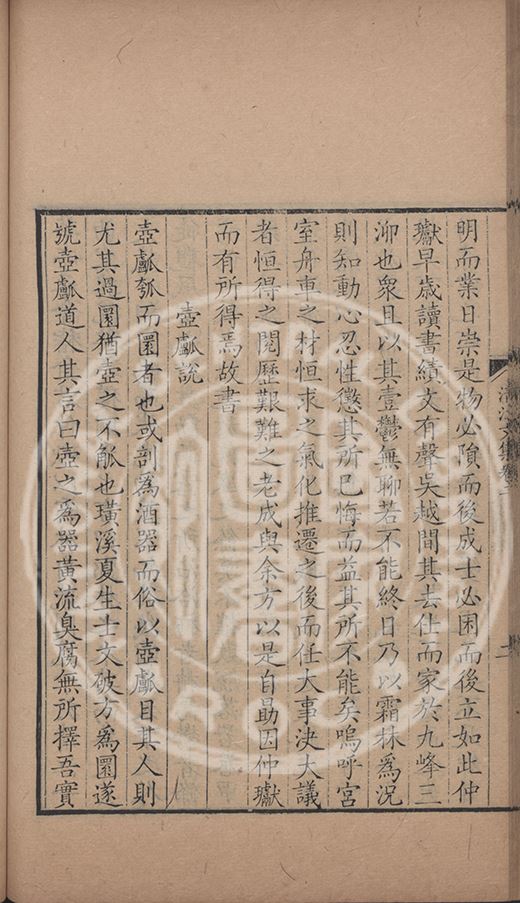 明而業日崇是物必隕而後成士必困而後立如此仲
瓛早歲讀書績文有聲吳越間其去仕而家於九峰三
泖也衆且以其壹鬱無聊若不能終日乃以霜林爲況
則知動心忍性懲其所已悔而益其所不能矣嗚呼宮
室舟車之材恒求之氣化推遷之後而任大事決大議
者恒得之閱歷艱難之老成與余方以是自勗因仲瓛
而有所得焉故書
壺瓢說
壺瓢瓠而圜者也或剖爲酒器而俗以壺瓢目其人則
尤其過圜猶壺之不觚也璜溪夏生士文破方爲圜遂
號壺瓢道人其言曰壺之爲器黃流臭腐無所擇吾實